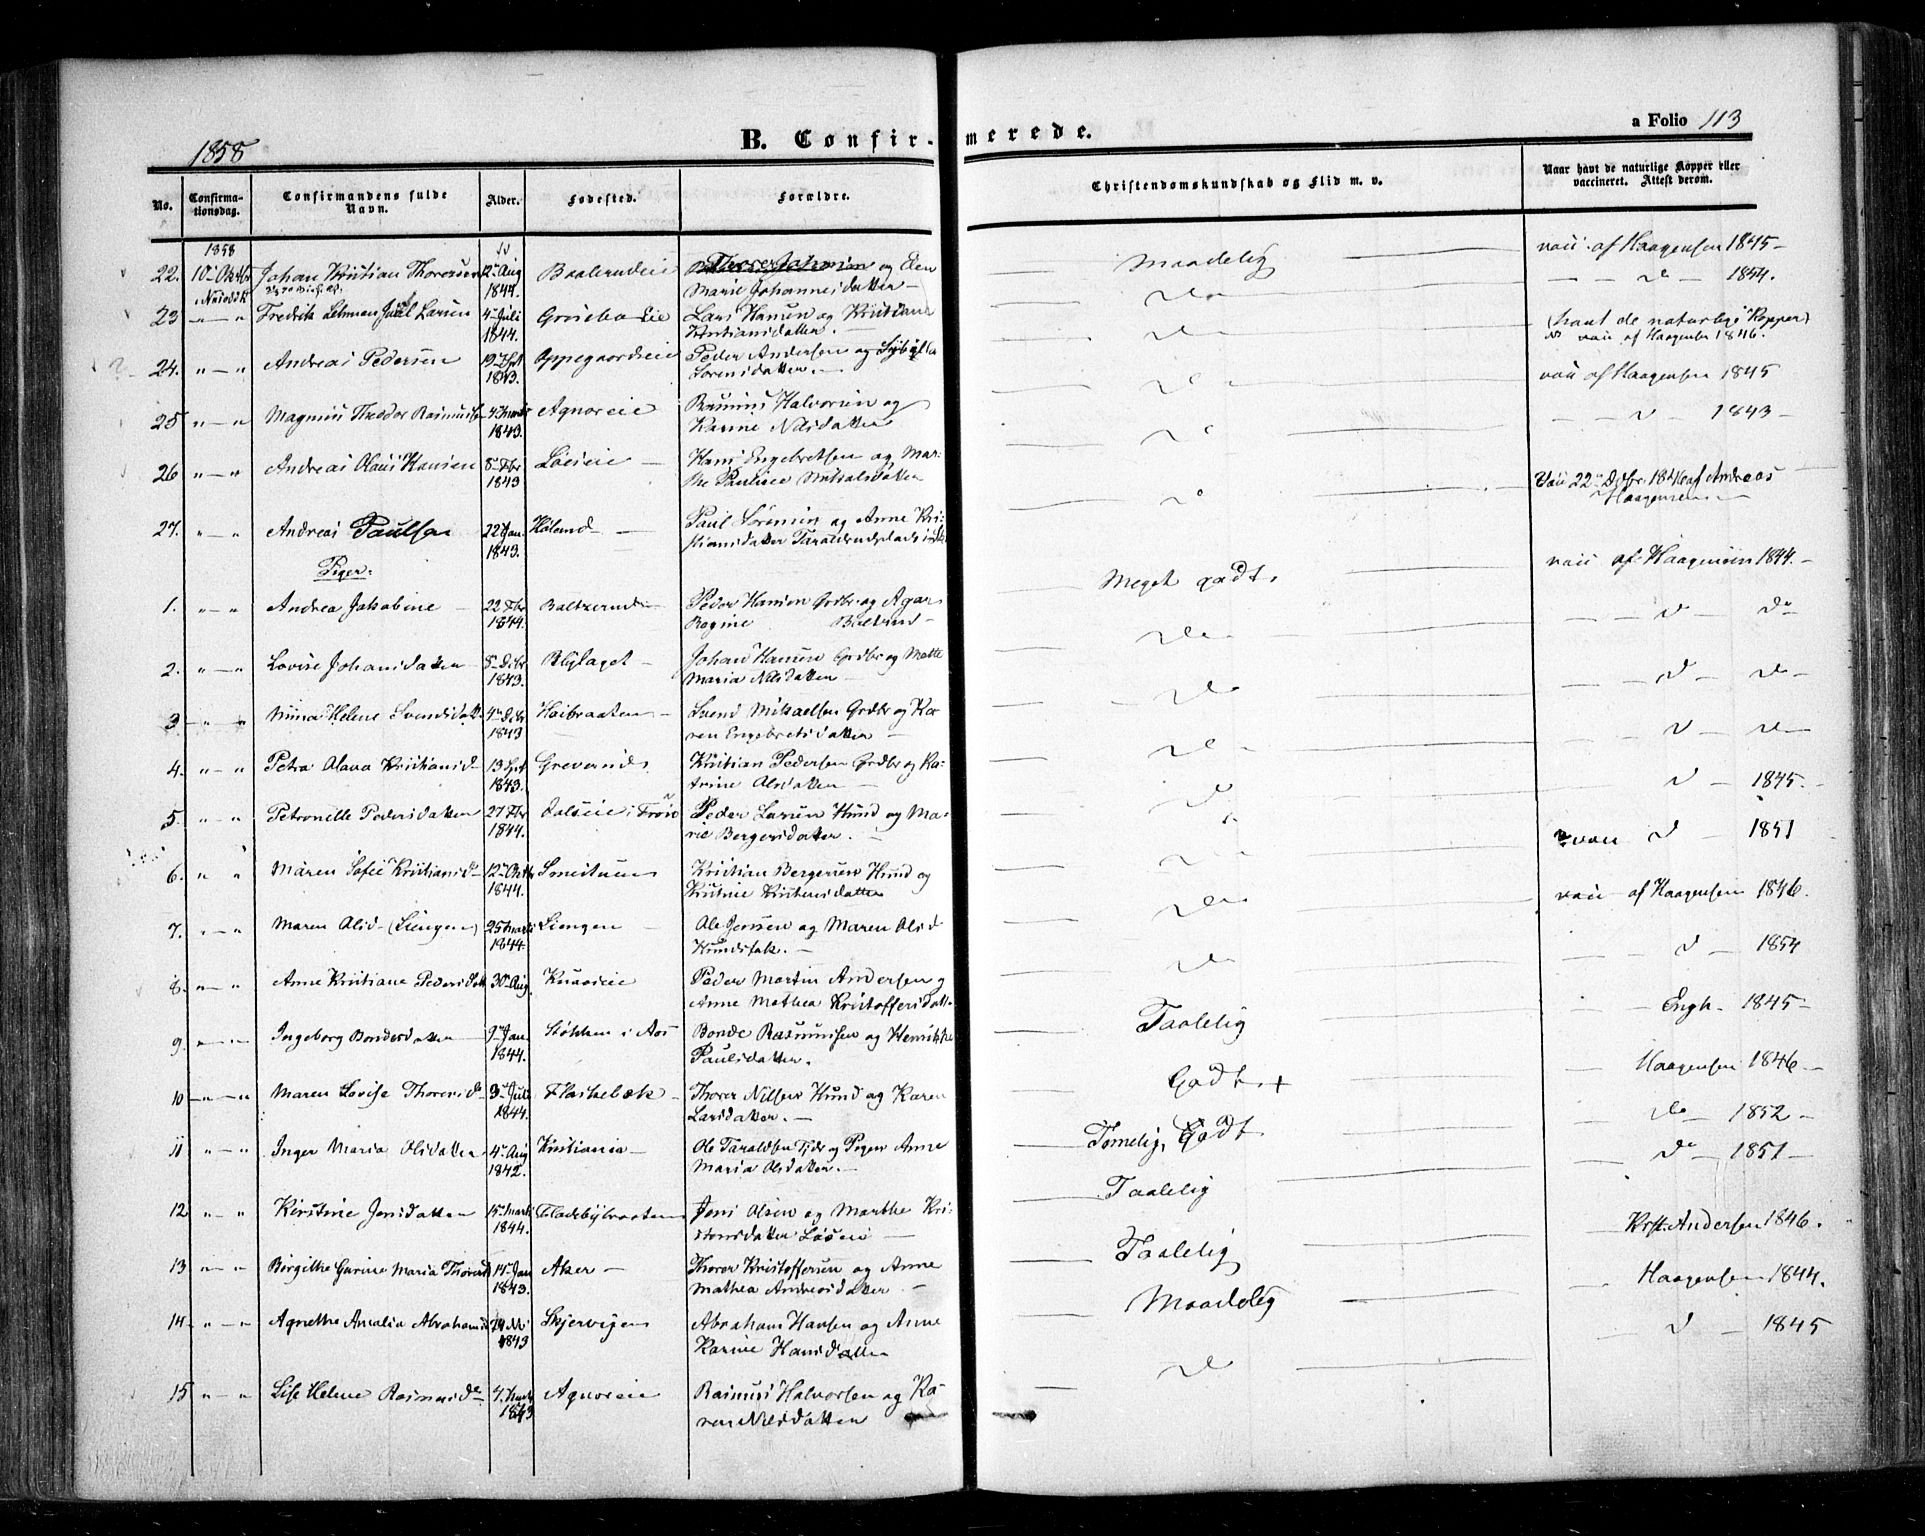 1858
B. Confirmerede.
a Folio 113
No. Confirmationsdag. Confirmandens fulde Navn. Alder. Fødested. Forældre. Christendomskundskab og Flid m. v. Naar havt de naturlige Kopper eller vaccineret. Attest derom.
1858
22. 10 Oktbr Johan Kristian Thoresen 12 Aug 1844 Baalerudeie og Elen Marie Johannesdatter Maadelig vacc. af Haagensen 1845
i Næsodd.
23 " — " Fredrik Juel Larsen 4 Juli 1844. Lars Hansen og Kristiane Kristiansdatter. do — d — 1844.
24. " — " Andreas Pedersen 19 1843. Oppegaardseie Peder Andersen og Sybille Sørensdatter. do (havt de naturlige Kopper) vacc af Haagensen 1846.
25 " — " Magnus Theodor Rasmussen 4 Marts 1843. Agnoreie Rasmus Halvorsen og Karine Nilsdatter do vacc af Haagensen 1845
26 " — " Andreas Olaus Hansen 8 Fbr 1843 Løeseie — Hans Engebretsen og Marthe Pauline Mikalsdatter do — d — 1843
27. " — " Andreas Paulsen 22 Jan. 1843. Høland — Paul Sørensen og Anne Kristiansdatter do Vacc 22 Decbr. 1846 af Andreas Haagensen
Piger.
1. " — " Andrea Jakobine 22 Fbr 1844. Baltzerud — Peder Hansen Grdbr og Agnes Regine Meget godt. vacc af Haagensen 1844.
2. " — " Lovise Johansdatter 5 Decbr 1843. Blylaget — Johan Hansen Grdbr og Mathe Maria Nilsdatter do — d — do
3 " — " Nina Helene Svendsdatt 4 Decbr 1843 Høibraaten — Svend Mikaelsen Grdbr og Karen Engebretsdatter do — d — do
4. " — " Petra Olava Kristiansd 13 Spt 1843. Greverud Kristian Pedersen Grdbr og Katrine Olsdatter do — d — do
5. " — " Petronelle Pedersdatter 27 Fbr 1844. i Frøn Peder Larsen Huusd og Marie Bergersdatter. d — d — 1845.
6. " " Maren Sofie Kristiansd 12 Oktbr 1844. Kristian Bergersen Huusd og Kristine Kristensdatter do vacc d — 1851
7. " — " Maren Olsd (Liengen) 25 Marts 1844. Liengen Ole Jensen og Maren Olsd do vacc af Haagensen 1846.
8. " — " Anne Kristiane Pedersdatt 30 Aug. Peder Martin Andersen og Anne Mathea Kristoffersdatt do d — 1854
9. " — " Ingeborg Bondesdatter 9 Jan 1844. Støkken i Aas Bonde Rasmussen og Henrikke Paulsdatter. Taalelig — Engh. 1845
10 " — " Maren Lovise Thoresd 3 Juli 1844. Flaskebæk — Thorer Nilsen Huusd og Karen Larsdatter. — Godt. + Haagensen 1846
11 " — " Inger Maria Olsdatter 4 Aug 1842. Kristiania — Ole Taraldsen Tjdr og Pigen Anne Maria Olsdatter. — Temelig, Godt do — 1852 —
12 " — " Kirstine Jensdatter 15 Marts 1844. Fladebybraaten Jens Olsen og Marthe Kristensdatter Løseie — Taalelig do — 1851 —
13 " — " Birgithe Gurine Maria Thoresd 14 Jan 1843. Aker — Thorer Kristoffersen og Anne Mathea Andreasdatter — Taalelig Krst. Andersen 1846.
14 " — " Agnethe Amalia Abrahamsd 1843 Skjervigen Abraham Hansen og Anne Karine Hansdatter Maadelig Haagensen 1844.
15 " — " Lise Helene Rasmusd 4 Marts 1843 Agnoreie Rasmus Halvorsen og Karen Nilsdatter do d — 1845